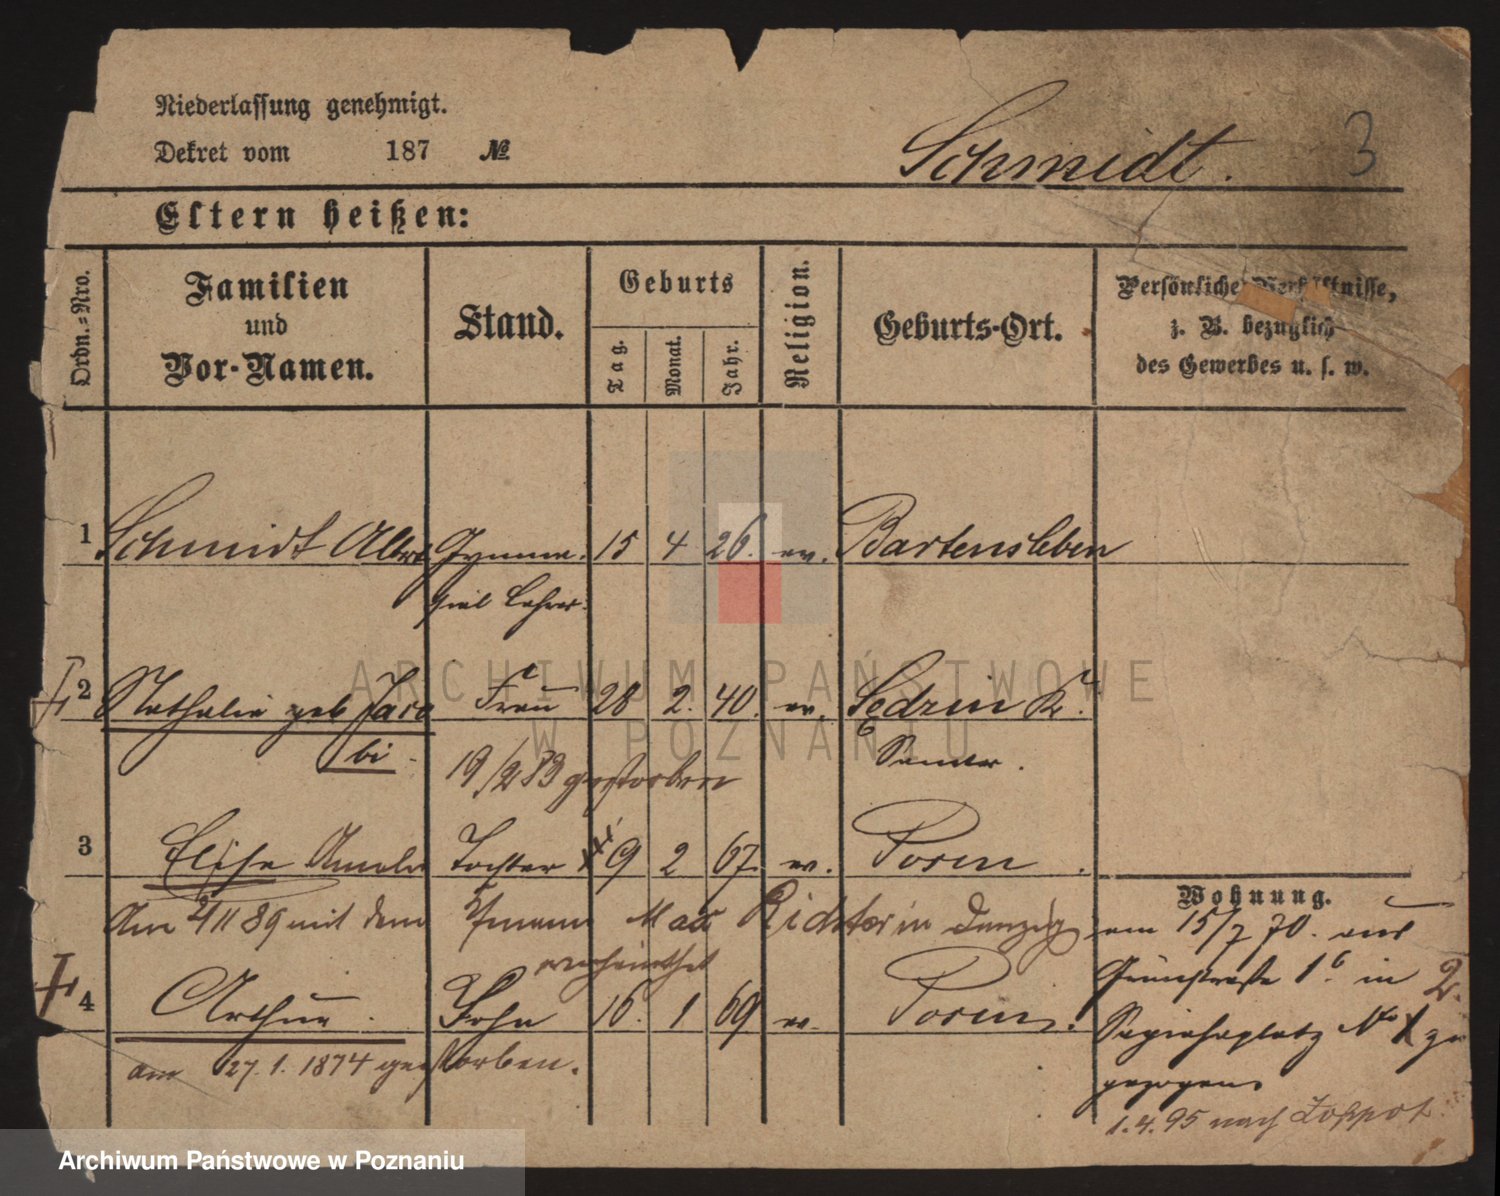 Niederlassung genehmigt.
Dekret vom 187 №
Schmidt. 3
Eltern heißen:
Ordn.-Nro.
Familien
und
Vor-Namen.
Stand.
Geburts
Tag.
Monat.
Jahr.
Religion.
Geburts-Ort.
Persönliche Verhältnisse,
z. B. bezüglich
des Gewerbes u. s. w.
1 Schmidt Albre Gymna- 15 4 26. ev. Bartensleben
sial Lehrer.
2 Nathalie geb Jaco Frau 28 2. 40. ev. Sedzin Kr.
bi.
19/2 83 gestorben
3 Elise Amalie Tochter 9 2 67. ev. Posen.
Am 2/11 89 mit dem Max Richter in Danzig
verheirathet
4 Arthur. Sohn 16. 1 69 ev. Posen.
am 27. 1. 1874 gestorben.
Wohnung.
am 15/7 70. aus
Grünstraße 1 in 2.
Sapiehaplatz No 1 zu
gezogen
1.4.95 nach Zoppot.
ARCHIWUM PAŃSTWOWE
W POZNANIU
Archiwum Państwowe w Poznaniu